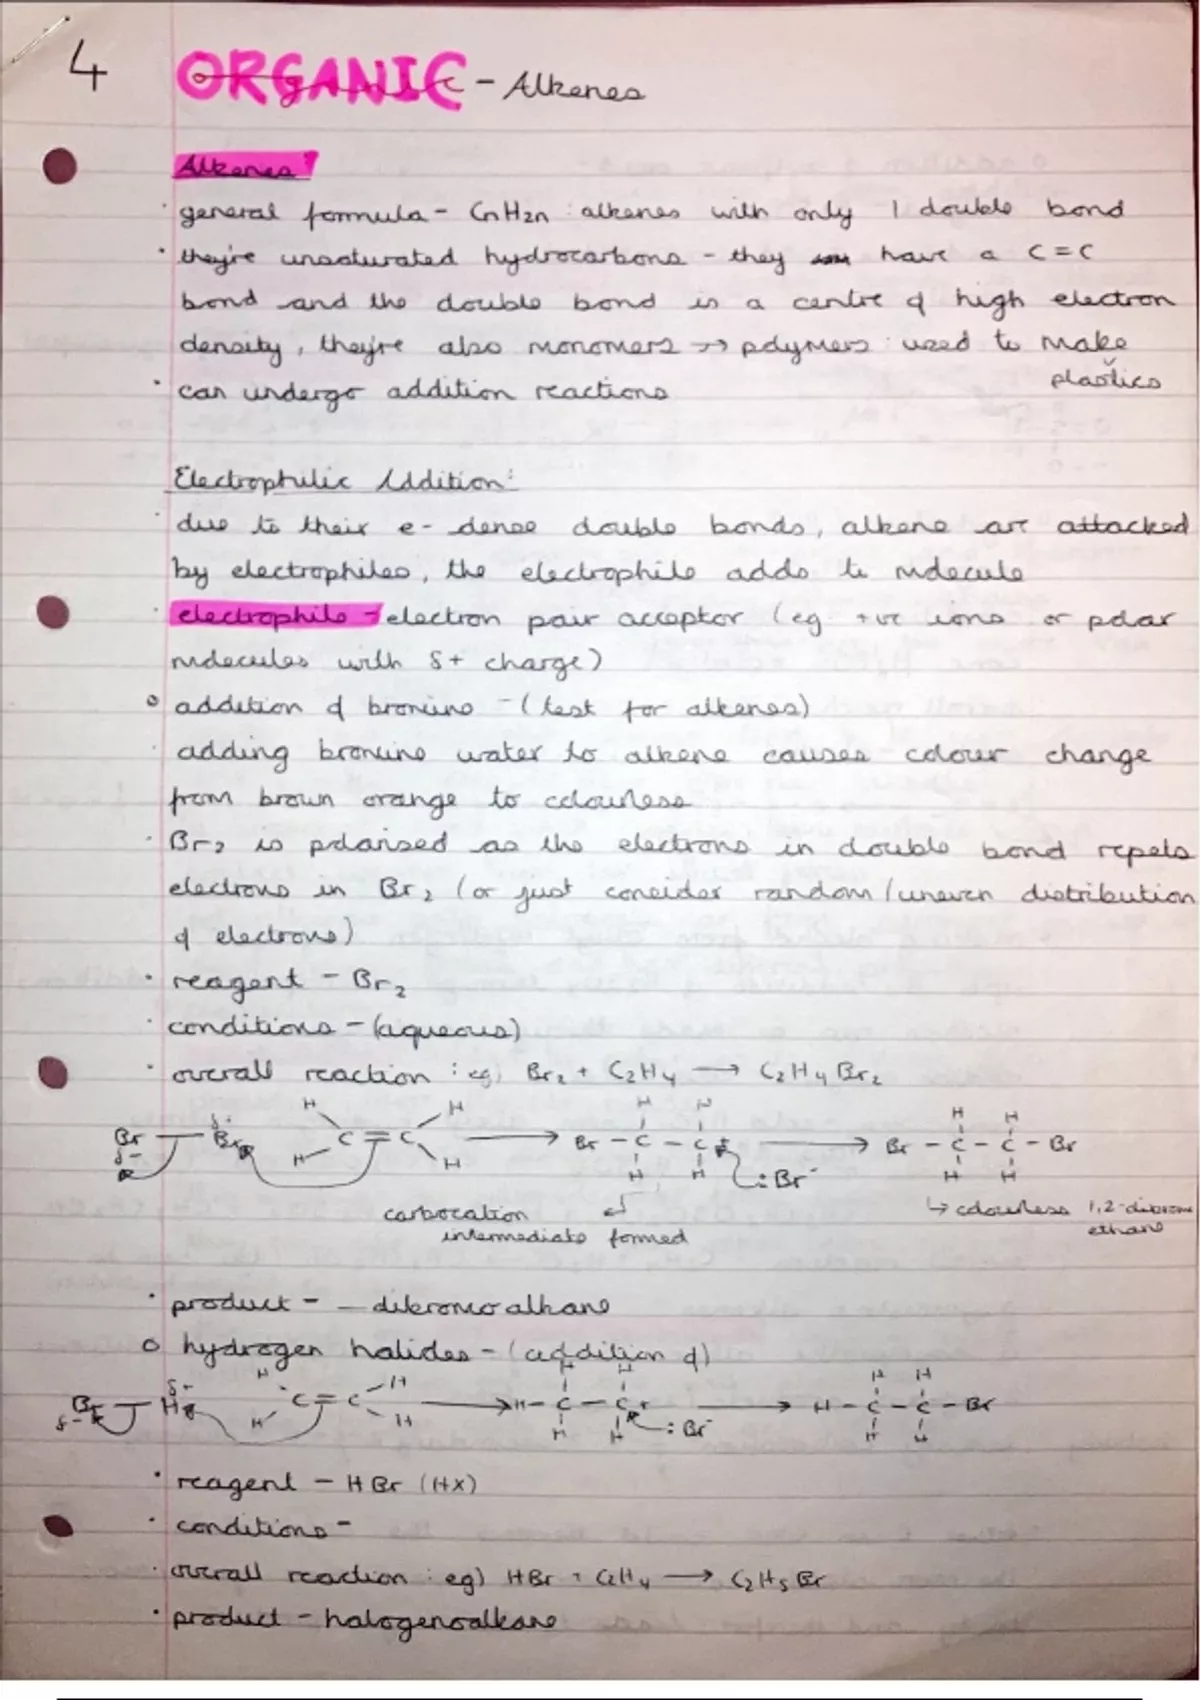 4
ORGANIC - Alkenes
Alkenes:
· general formula - CnH2n : alkenes with only 1 double bond
· they're unsaturated hydrocarbons - they have a C=C
bond and the double bond is a centre of high electron
density, they're also monomers → polymers : used to make
plastics
· can undergo addition reactions
Electrophilic Addition:
· due to their e- dense double bonds, alkene are attacked
by electrophiles, the electrophile adds to molecule
· electrophile - electron pair acceptor (eg +ve ions or polar
molecules with δ+ charge)
o addition of bromine - (test for alkenes)
· adding bromine water to alkene causes colour change
from brown orange to colourless
· Br2 is polarised as the electrons in double bond repels
electrons in Br2 (or just consider random/uneven distribution
of electrons)
· reagent - Br2
· conditions - (aqueous)
· overall reaction : eg) Br2 + C2H4 → C2H4Br2
H H H H H H
Br - Br C = C → Br - C - C + → Br - C - C - Br
δ- δ+ H H H H :Br- H H
carbocation ↳ colourless 1,2-dibromo
intermediate formed ethane
· product - - dibromoalkane
o hydrogen halides - (addition of)
H H H H H H
Br - H C = C → H - C - C + → H - C - C - Br
δ- H H H H :Br- H H
· reagent - HBr (HX)
· conditions -
· overall reaction : eg) HBr + C2H4 → C2H5Br
· product - halogenoalkane